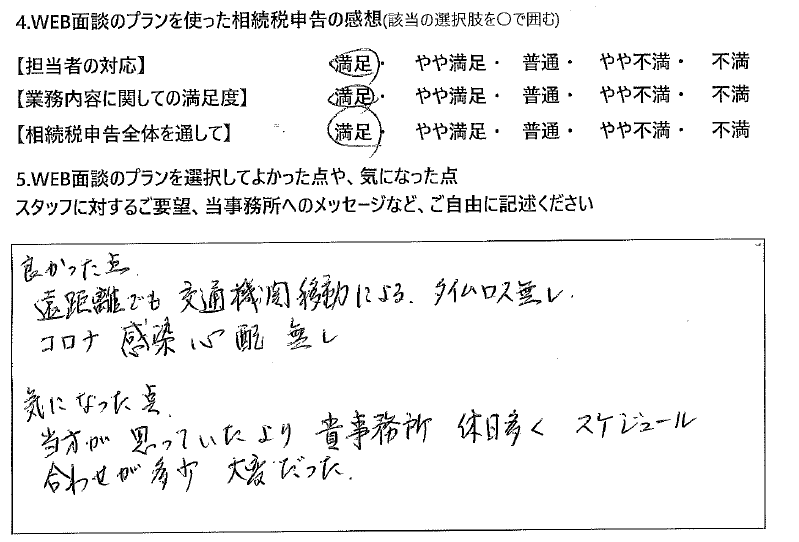 4.WEB面談のプランを使った相続税申告の感想(該当の選択肢を〇で囲む)
【担当者の対応】 満足・ やや満足・ 普通・ やや不満・ 不満
【業務内容に関しての満足度】 満足・ やや満足・ 普通・ やや不満・ 不満
【相続税申告全体を通して】 満足・ やや満足・ 普通・ やや不満・ 不満
5.WEB面談のプランを選択してよかった点や、気になった点
スタッフに対するご要望、当事務所へのメッセージなど、ご自由に記述ください
良かった点.
遠距離でも 交通機関移動による、タイムロス無し.
コロナ 感染 心配 無し
気になった点.
当方が 思っていたより 貴事務所 休日多く スケジュール
合わせが多少 大変だった.